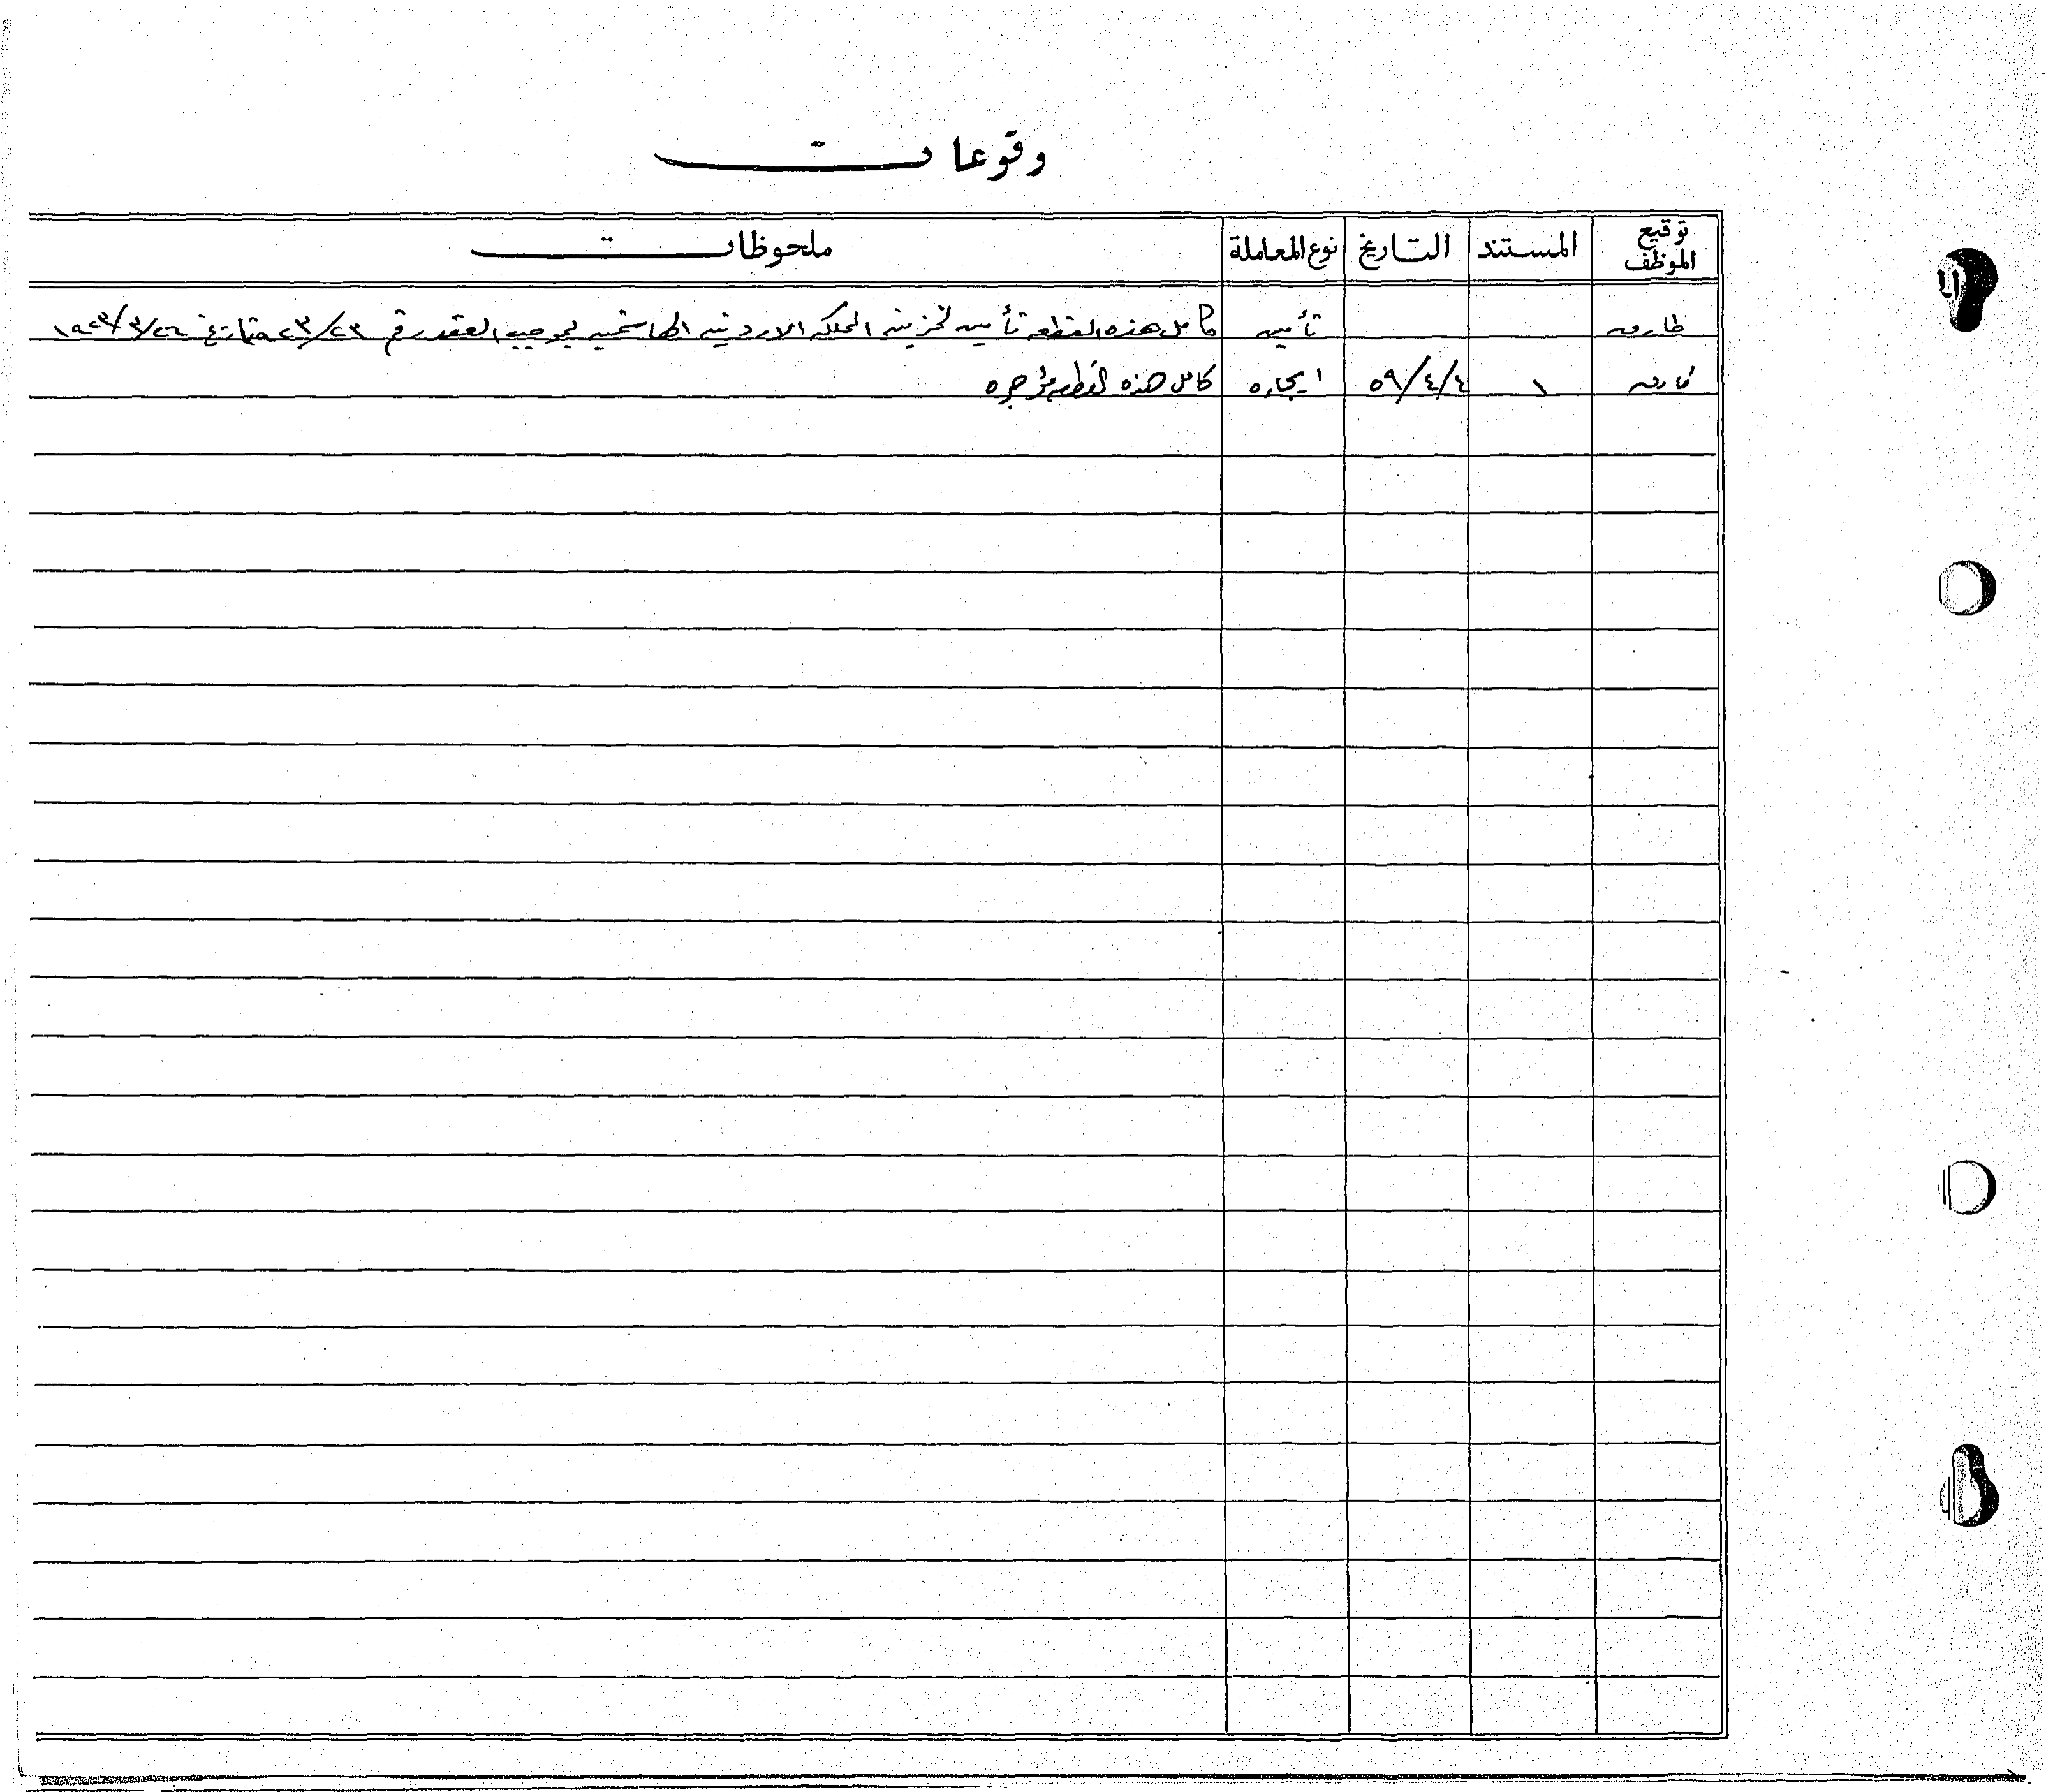 وقوعات
توقيع الموظف المستند التاريخ نوع المعاملة ملحوظات
طارق تأمين كامل هذه القطعه تأمين لخزينة المملكه الاردنيه الهاشميه بموجب العقد رقم ٢٣/ بتاريخ ٢٦/٣/
١ ٤/٤/٥٩ ايجاره كامل هذه القطعه مؤجره